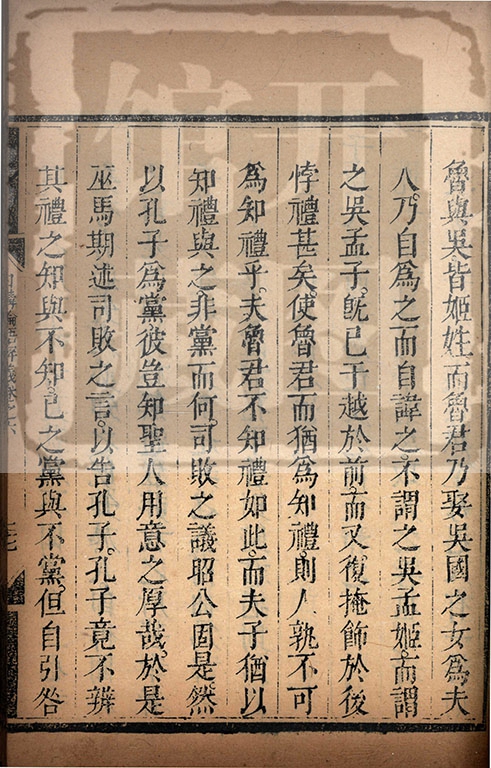 魯與吳皆姬姓而魯君乃娶吳國之女為夫
人乃自為之而自諱之不謂之吳孟姬而謂
之吳孟子既已干越於前而又復掩飾於後
悖禮甚矣使魯君而猶為知禮則人孰不可
為知禮乎夫魯君不知禮如此而夫子猶以
知禮與之非黨而何司敗之議昭公固是然
以孔子為黨彼豈知聖人用意之厚哉於是
巫馬期述司敗之言以告孔子孔子竟不辨
其禮之知與不知己之黨與不黨但自引咎